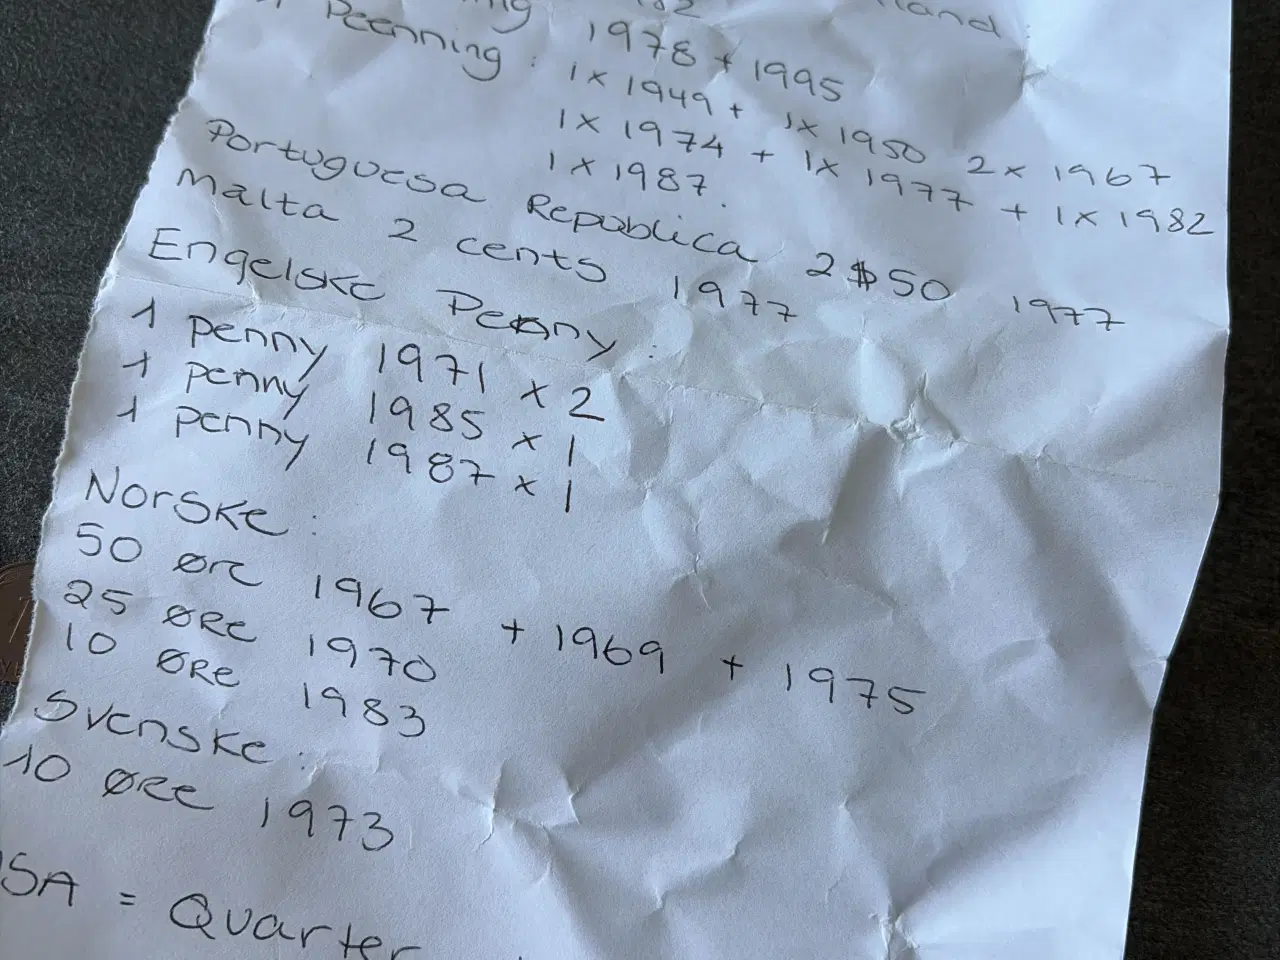 1978 + 1995
Pfenning: 1 x 1949 + 1x 1950 2 x 1967
1 x 1974 + 1x 1977 + 1 x 1982
1 x 1987.
Portuguesa Republica 2$50 1977
Malta 2 cents 1977
Engelske Penny:
1 penny 1971 x 2
1 penny 1985 x 1
1 penny 1987 x 1
Norske:
50 øre 1967 + 1969 + 1975
25 øre 1970
10 øre 1983
Svenske:
10 øre 1973
SA = Quarter